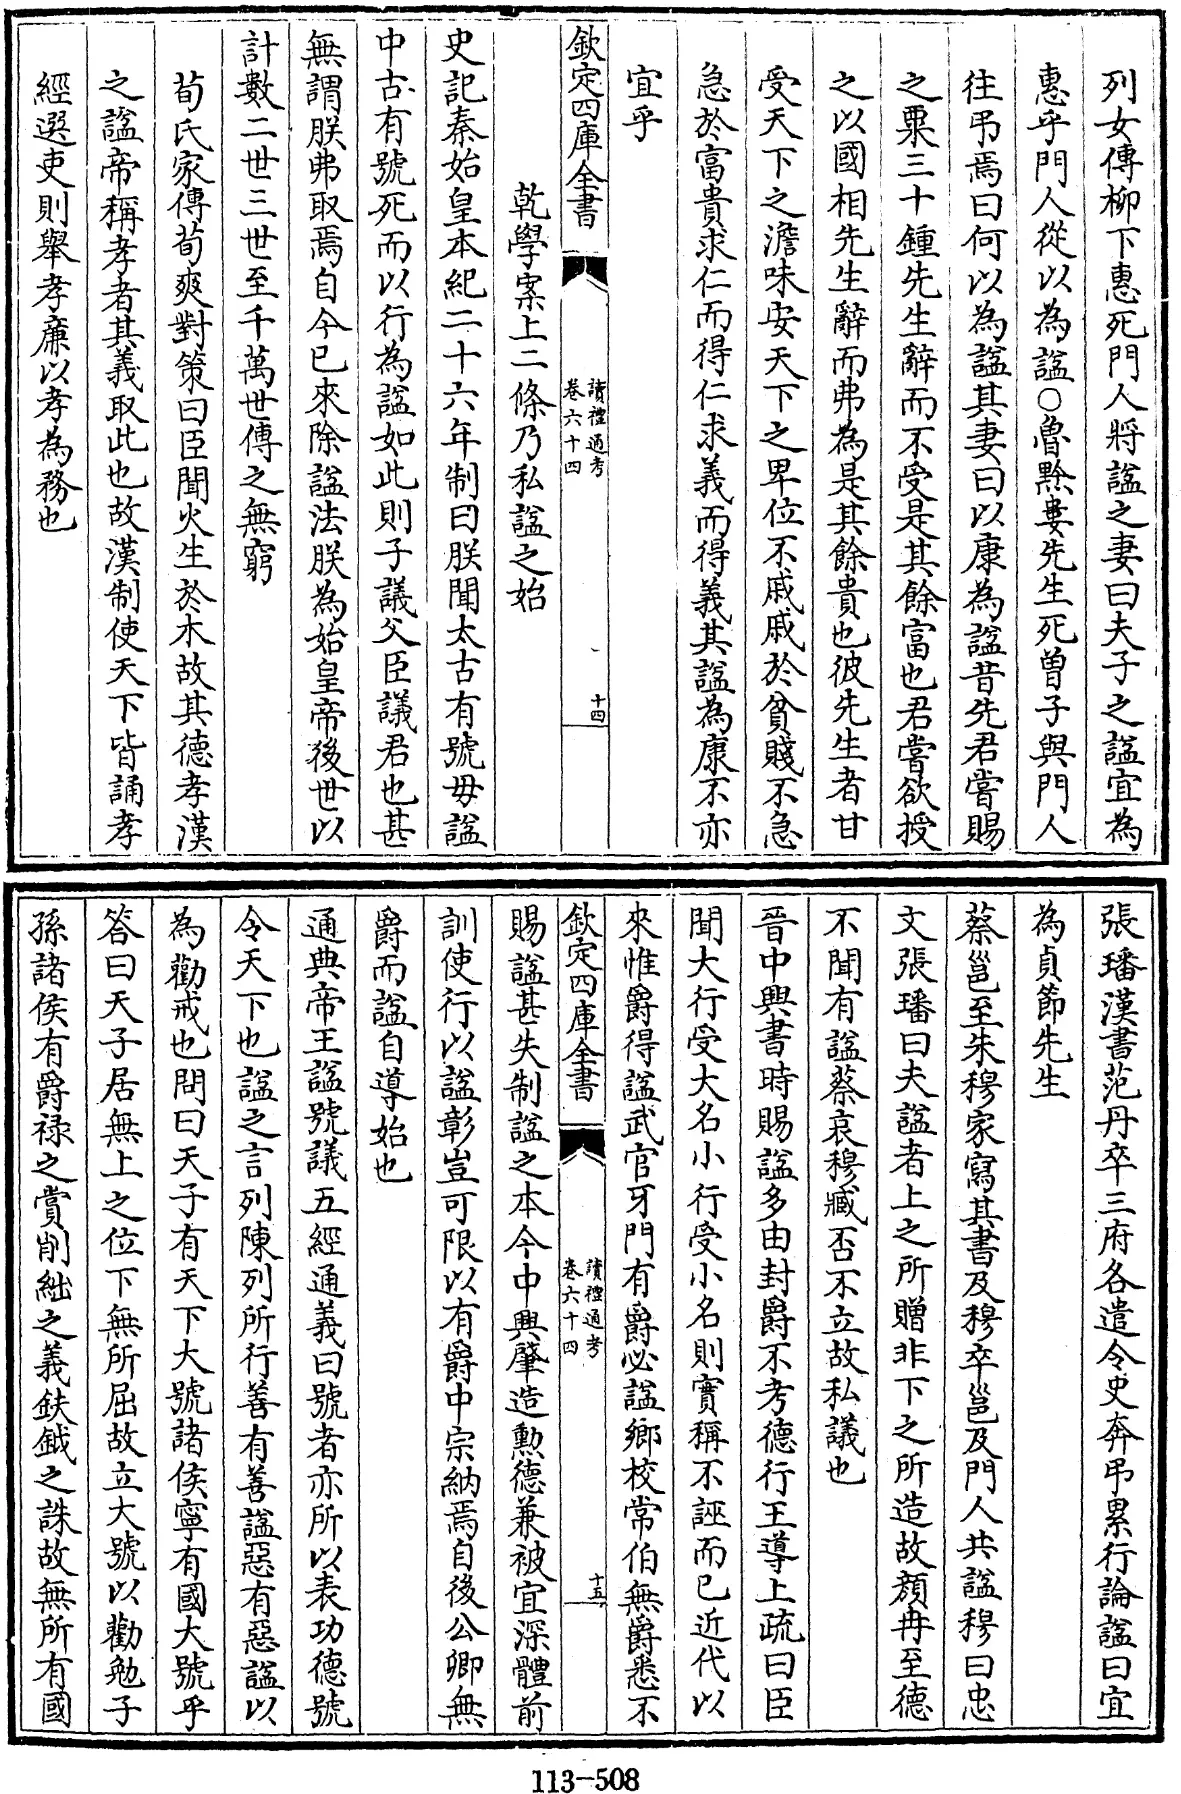 列女傳柳下惠死門人將諡之妻曰夫子之諡宜為
惠乎門人從以為諡○魯黔婁先生死曾子與門人
往弔焉曰何以為諡其妻曰以康為諡昔先君嘗賜
之粟三十鍾先生辭而不受是其餘富也君嘗欲授
之以國相先生辭而弗為是其餘貴也彼先生者甘
受天下之澹味安天下之卑位不戚戚於貧賤不急
急於富貴求仁而得仁求義而得義其諡為康不亦
宜乎
欽定四庫全書
讀禮通考
卷六十四
十四
乾學案上二條乃私諡之始
史記秦始皇本紀二十六年制曰朕聞太古有號毋諡
中古有號死而以行為諡如此則子議父臣議君也甚
無謂朕弗取焉自今已來除諡法朕為始皇帝後世以
計數二世三世至千萬世傳之無窮
荀氏家傳荀爽對策曰臣聞火生於木故其德孝漢
之諡帝稱孝者其義取此也故漢制使天下皆誦孝
經選吏則舉孝廉以孝為務也
張璠漢書范丹卒三府各遣令史奔弔累行論諡曰宜
為貞節先生
蔡邕至朱穆家寫其書及穆卒邕及門人共諡穆曰忠
文張璠曰夫諡者上之所贈非下之所造故顏冉至德
不聞有諡蔡哀穆臧否不立故私議也
晉中興書時賜諡多由封爵不考德行王導上疏曰臣
聞大行受大名小行受小名則實稱不誣而已近代以
來惟爵得諡武官牙門有爵必諡鄉校常伯無爵悉不
欽定四庫全書
讀禮通考
卷六十四
十五
賜諡甚失制諡之本今中興肇造勲德兼被宜深體前
訓使行以諡彰豈可限以有爵中宗納焉自後公卿無
爵而諡自導始也
通典帝王諡號議五經通義曰號者亦所以表功德號
令天下也諡之言列陳列所行善有善諡惡有惡諡以
為勸戒也問曰天子有天下大號諸侯寧有國大號乎
答曰天子居無上之位下無所屈故立大號以勸勉子
孫諸侯有爵祿之賞削絀之義鈇鉞之誅故無所有國
113-508